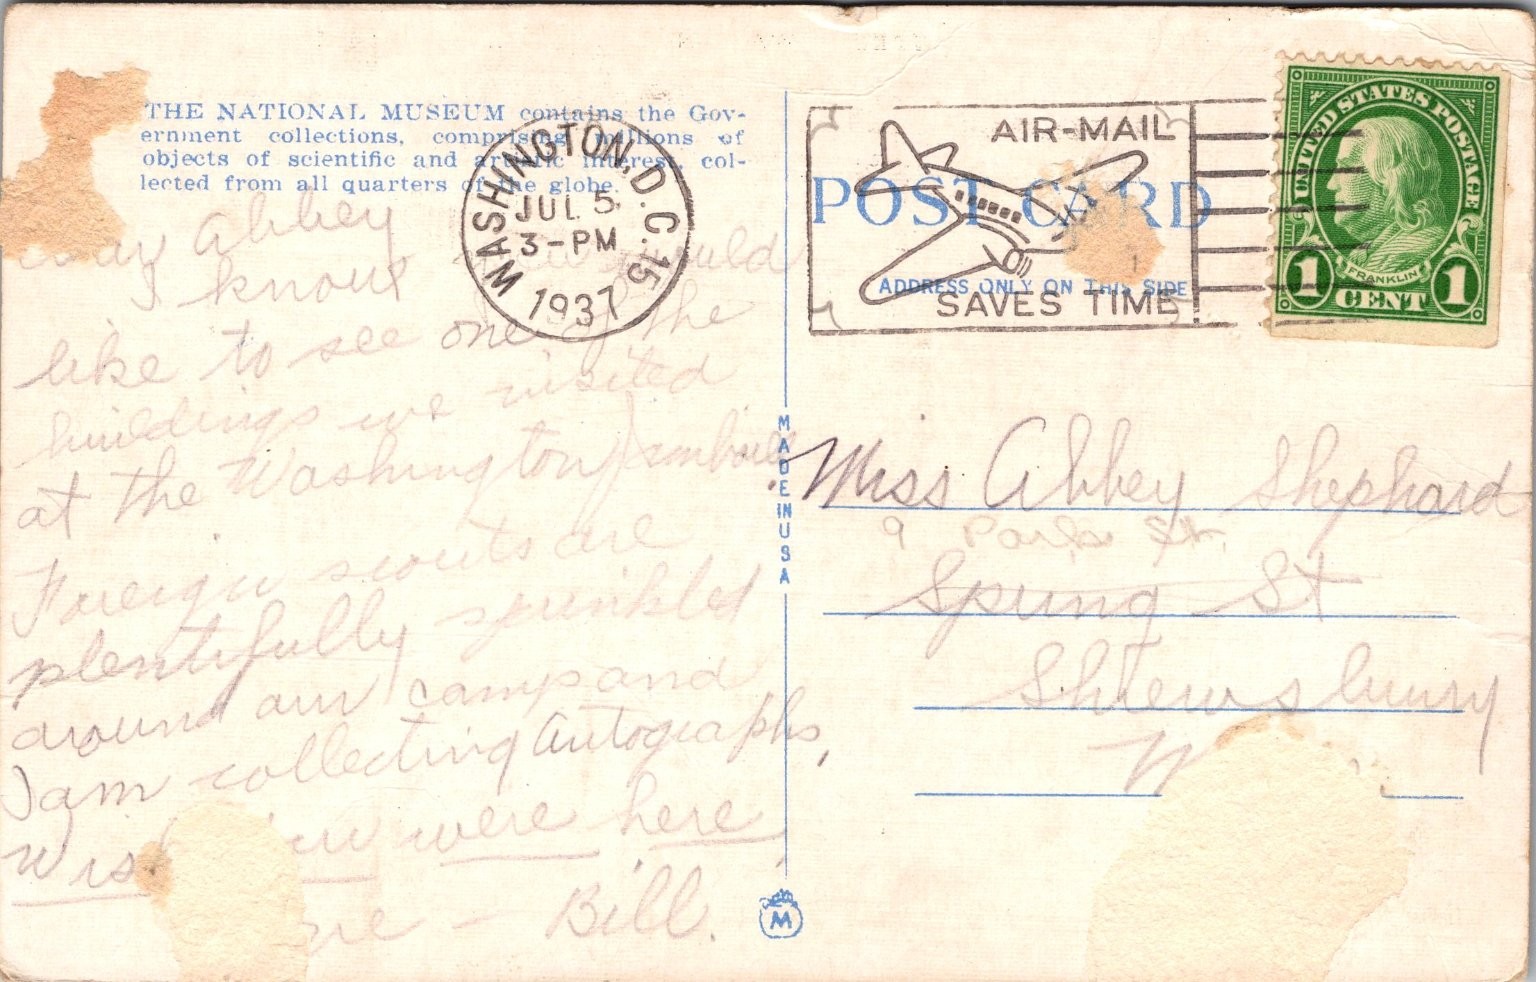 THE NATIONAL MUSEUM contains the Gov-
ernment collections, comprising millions of
objects of scientific and artistic interest col-
lected from all quarters of the globe.
Dear Abbey
I know you would
like to see one of the
buildings we visited
at the Washington Jamboree.
Foreign scouts are
plentifully sprinkled
around our camp and
I am collecting autographs,
Wish you were here
Bill.
WASHINGTON, D.C. 15
JUL 5
3-PM
1937
AIR-MAIL
SAVES TIME
POST CARD
ADDRESS ONLY ON THIS SIDE
UNITED STATES POSTAGE
FRANKLIN
1 CENT 1
MADE IN USA
M
Miss Abbey Shephard
9 Park St.
Spring St
Shrewsbury